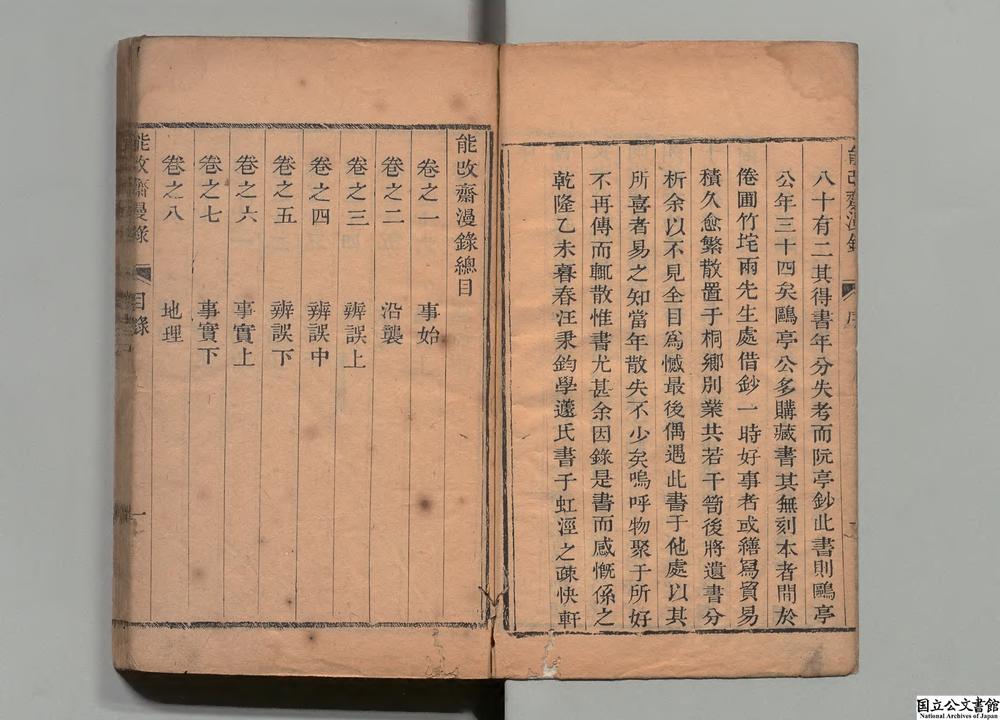 能改齋漫錄
序
八十有二其得書年分失考而阮亭鈔此書則鷗亭
公年三十四矣鷗亭公多購藏書其無刻本者間於
倦圃竹垞兩先生處借鈔一時好事者或繕寫貿易
積久愈繁散置于桐鄉別業共若干笥後將遺書分
析余以不見全目爲憾最後偶遇此書于他處以其
所喜者易之知當年散失不少矣嗚呼物聚于所好
不再傳而輒散惟書尤甚余因錄是書而感慨係之
乾隆乙未暮春汪秉鈞學蘧氏書于虹涇之疎快軒
能改齋漫錄總目
卷之一 事始
卷之二 沿襲
卷之三 辨誤上
卷之四 辨誤中
卷之五 辨誤下
卷之六 事實上
卷之七 事實下
卷之八 地理
能改齋漫錄
目錄
一
国立公文書館
National Archives of Japan